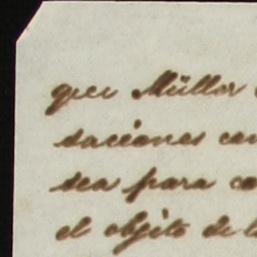 que Müller
daciones con
sea para co
el objeto de l